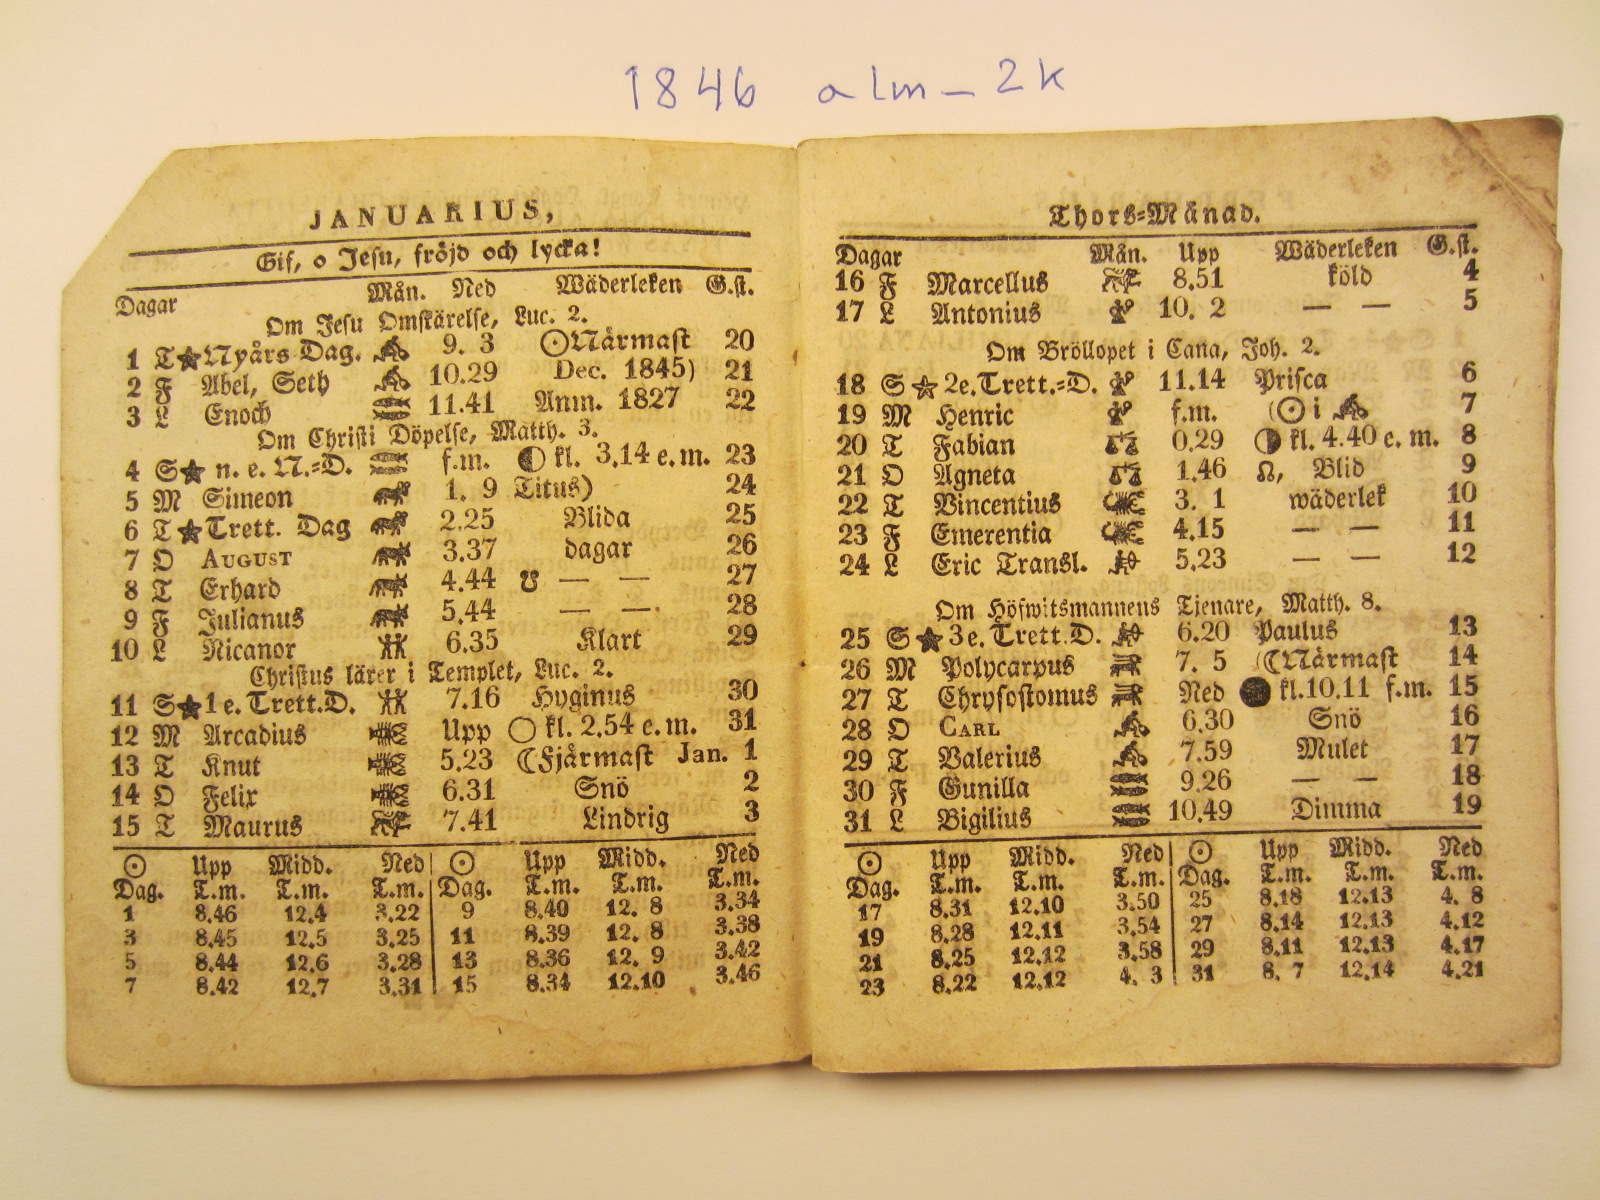 1846 alm_2k
JANUARIUS,
Gif, o Jesu, fröjd och lycka!
Dagar Mån. Ned Wäderleken G.st.
Om Jesu Omskärelse, Luc. 2.
1 T★Nyårs Dag. 9. 3 ☉Närmast 20
2 F Abel, Seth 10.29 Dec. 1845) 21
3 L Enoch 11.41 Anm. 1827 22
Om Christi Döpelse, Matth. 3.
4 S★ n. e. N.=D. f.m. kl. 3.14 e. m. 23
5 M Simeon 1. 9 Titus) 24
6 T★Trett. Dag 2.25 Blida 25
7 O AUGUST 3.37 dagar 26
8 T Erhard 4.44 ☋ — — 27
9 F Julianus 5.44 — — 28
10 L Nicanor 6.35 Klart 29
Christus lärer i Templet, Luc. 2.
11 S★1 e. Trett.D. 7.16 Hyginus 30
12 M Arcadius Upp ○ kl. 2.54 e. m. 31
13 T Knut 5.23 ☾Fjärmast Jan. 1
14 O Felix 6.31 Snö 2
15 T Maurus 7.41 Lindrig 3
☉ Upp Midd. Ned ☉ Upp Midd. Ned
Dag. T.m. T.m. T.m. Dag. T.m. T.m. T.m.
1 8.46 12.4 3.22 9 8.40 12. 8 3.34
3 8.45 12.5 3.25 11 8.39 12. 8 3.38
5 8.44 12.6 3.28 13 8.36 12. 9 3.42
7 8.42 12.7 3.31 15 8.34 12.10 3.46
Thors=Månad.
Dagar Mån. Upp Wäderleken G.st.
16 F Marcellus 8.51 köld 4
17 L Antonius 10. 2 — — 5
Om Bröllopet i Cana, Joh. 2.
18 S★2e.Trett.=D. 11.14 Prisca 6
19 M Henric f.m. (☉ i 7
20 T Fabian 0.29 kl. 4.40 e. m. 8
21 O Agneta 1.46 ☊, Blid 9
22 T Vincentius 3. 1 wäderlek 10
23 F Emerentia 4.15 — — 11
24 L Eric Transl. 5.23 — — 12
Om Höfwitsmannens Tjenare, Matth. 8.
25 S★3e.Trett.D. 6.20 Paulus 13
26 M Polycarpus 7. 5 (☾Närmast 14
27 T Chrysostomus Ned ● kl.10.11 f.m. 15
28 O CARL 6.30 Snö 16
29 T Valerius 7.59 Mulet 17
30 F Gunilla 9.26 — — 18
31 L Vigilius 10.49 Dimma 19
☉ Upp Midd. Ned ☉ Upp Midd. Ned
Dag. T.m. T.m. T.m. Dag. T.m. T.m. T.m.
17 8.31 12.10 3.50 25 8.18 12.13 4. 8
19 8.28 12.11 3.54 27 8.14 12.13 4.12
21 8.25 12.12 3.58 29 8.11 12.13 4.17
23 8.22 12.12 4. 3 31 8. 7 12.14 4.21